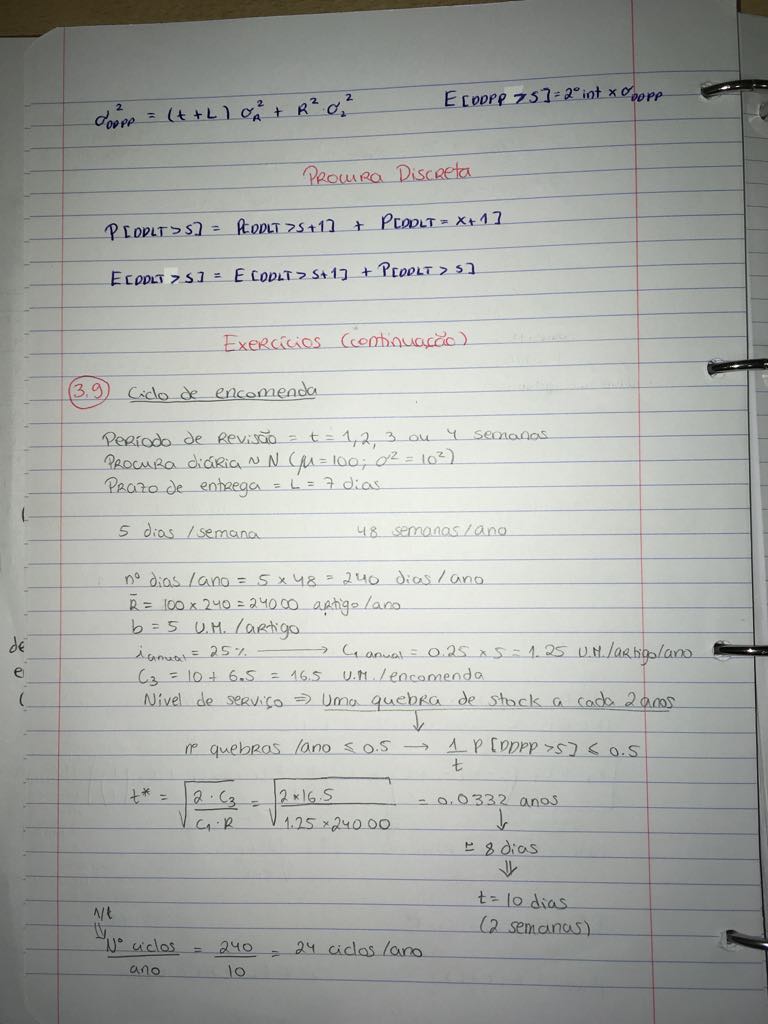 σ²DDPP = (t+L) σR² + R² · σL²    E[DDPP>S] = 2º int × σDDPP
PROCURA DISCRETA
P[DDLT>S] = P[DDLT>S+1] + P[DDLT=X+1]
E[DDLT>S] = E[DDLT>S+1] + P[DDLT>S]
EXERCÍCIOS (continuação)
3.9 Ciclo de encomenda
PERÍODO DE REVISÃO = t = 1, 2, 3 ou 4 semanas
PROCURA diária ~ N (μ=100; σ²=10²)
PRAZO de entrega = L = 7 dias
5 dias /semana    48 semanas/ano
nº dias/ano = 5 × 48 = 240 dias/ano
R̄ = 100×240 = 24000 artigo/ano
b = 5 U.M./artigo
i anual = 25% → C1 anual = 0.25 × 5 = 1.25 U.M./artigo/ano
C3 = 10 + 6.5 = 16.5 U.M./encomenda
Nível de serviço ⇒ Uma quebra de stock a cada 2 anos
↓
nº quebras /ano ≤ 0.5 → 1/t P[DDPP>S] ≤ 0.5
t* = √(2·C3 / C1·R) = √(2×16.5 / 1.25×24000) = 0.0332 anos
↓
≈ 8 dias
⇓
t = 10 dias
(2 semanas)
1/t
⇓
Nº ciclos / ano = 240 / 10 = 24 ciclos/ano
de
e
(